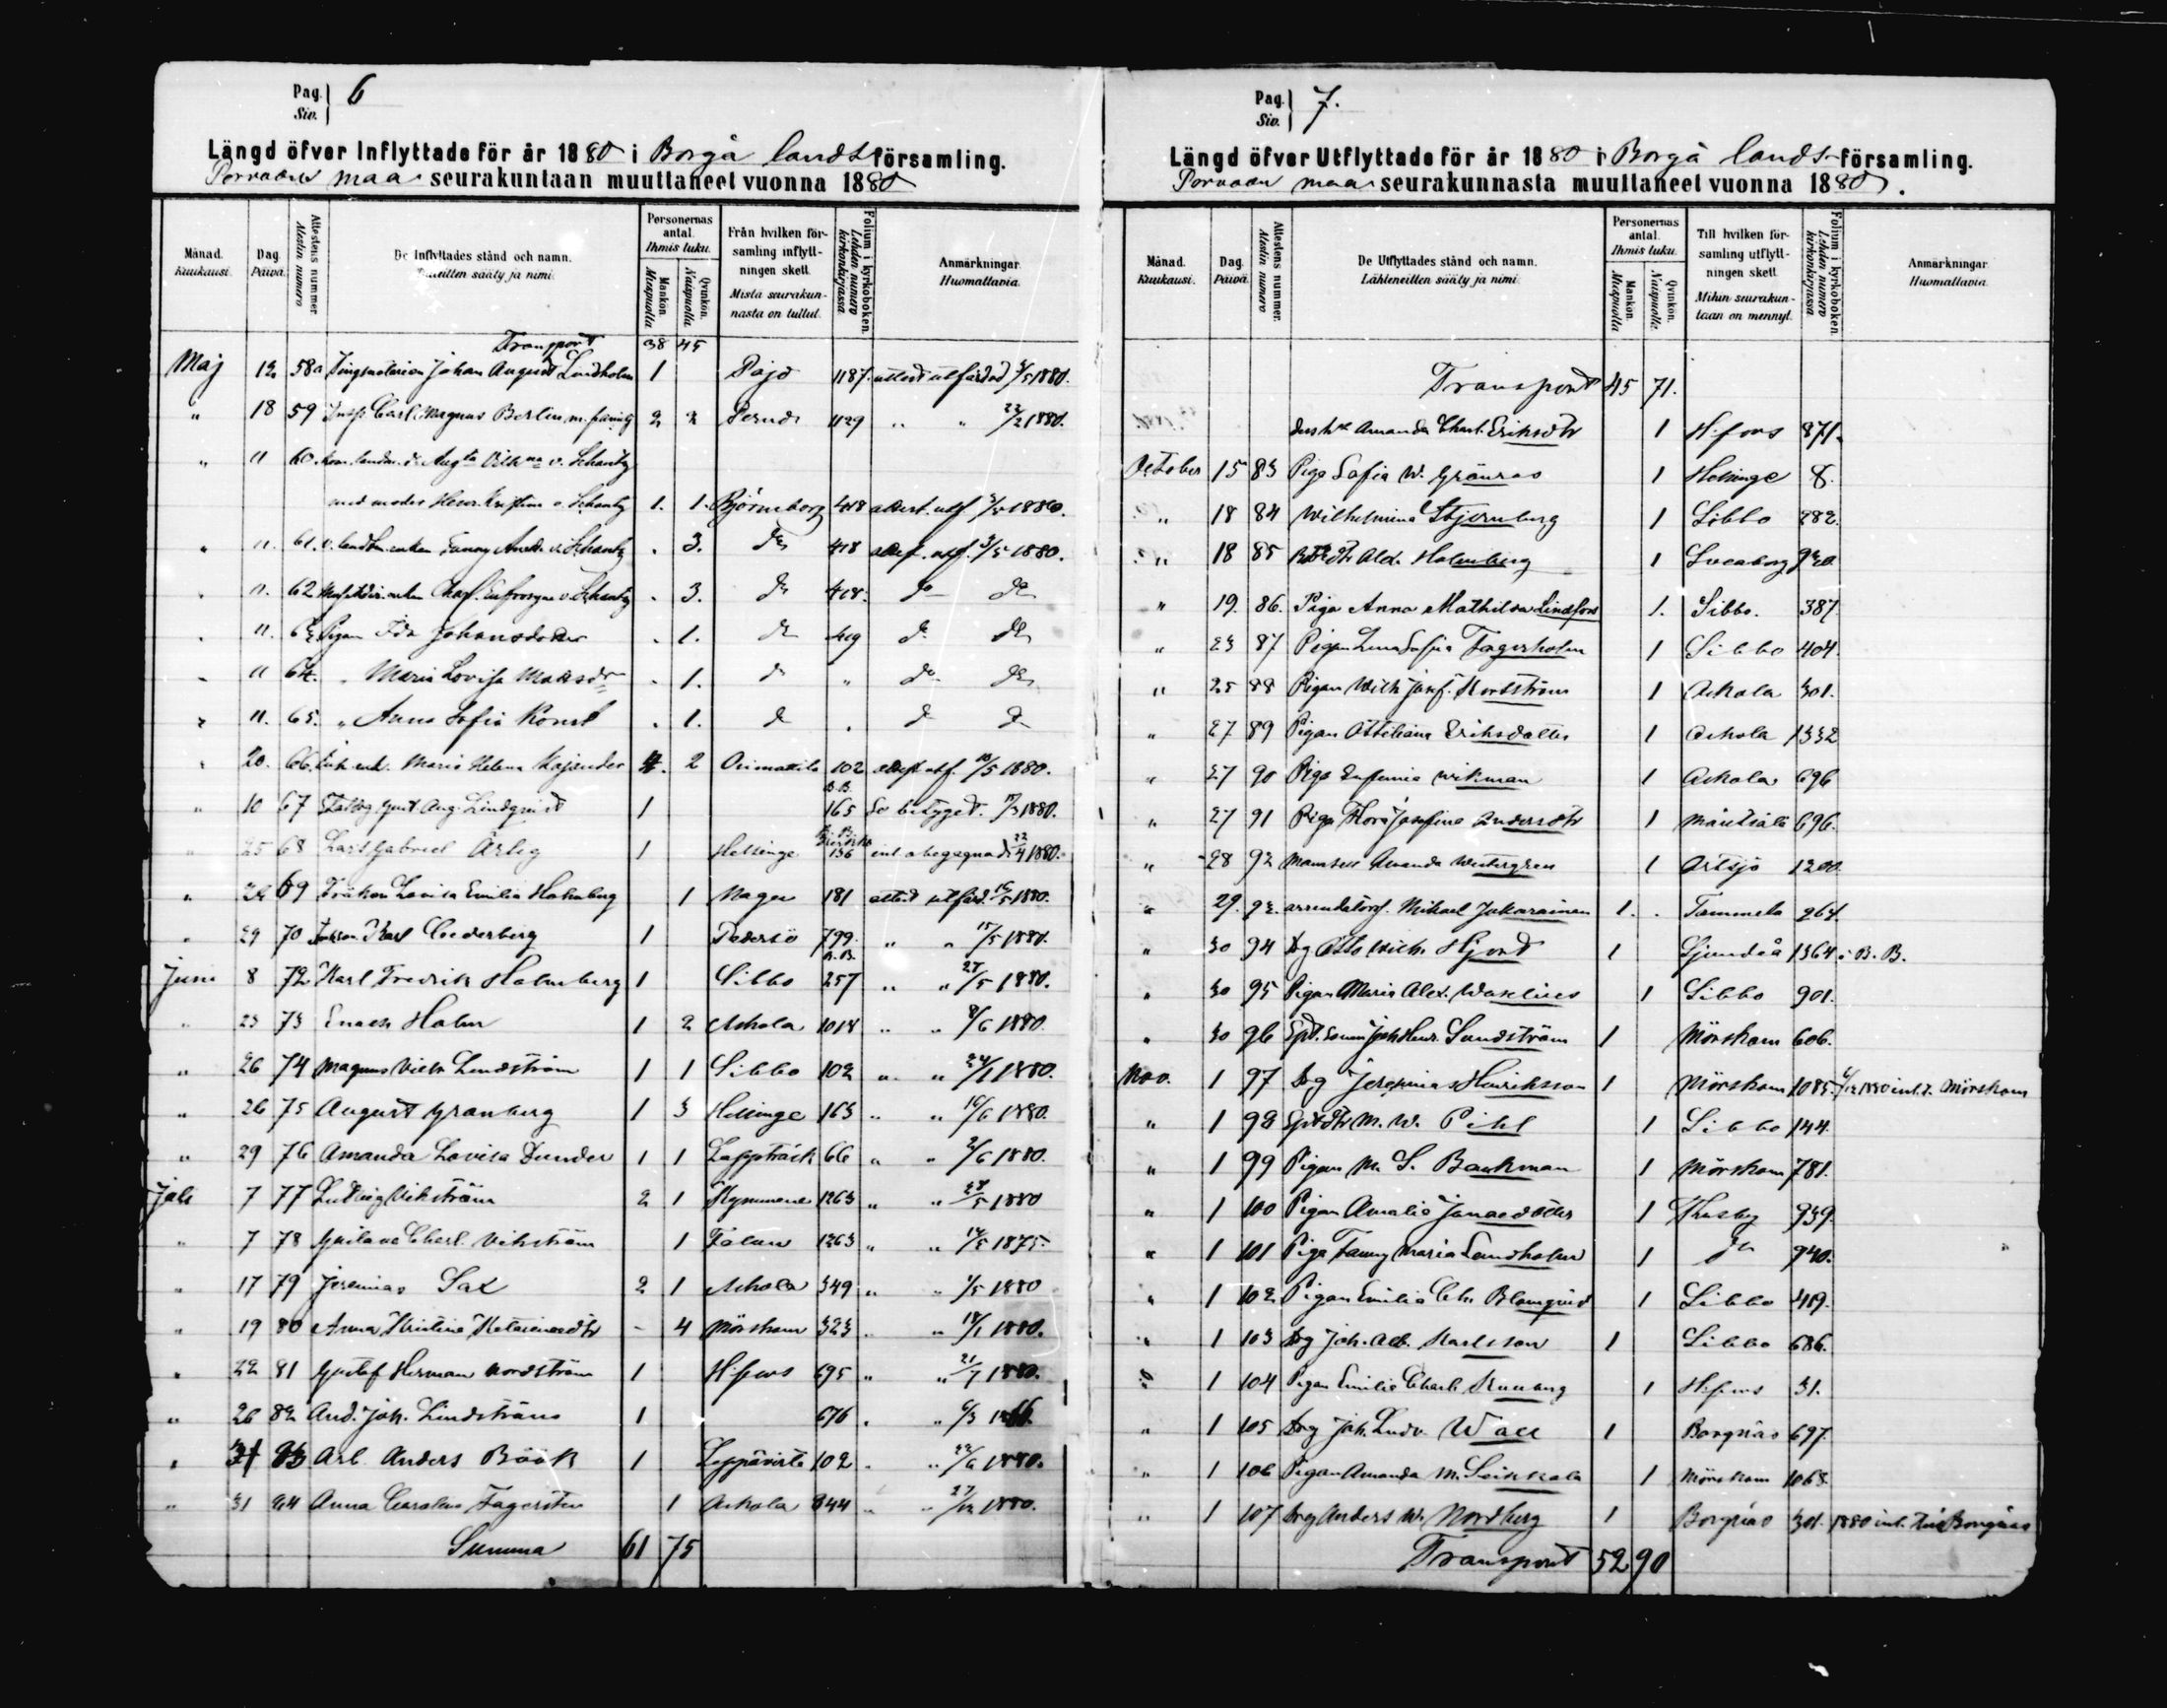 Pag. Siv. 6
Längd öfver Inflyttade för år 1880 i Borgå landsförsamling.
Porvoon maa seurakuntaan muuttaneet vuonna 1880
Månad. Kuukausi.
Dag. Päivä.
Attestens nummer. Atestin numero
De Inflyttades stånd och namn.
sääty ja nimi.
Personernas antal. Ihmis luku.
Mankön. Miespuolia
Qvinkön. Naispuolia
Från hvilken församling inflyttningen skett.
Mistä seurakunnasta on tullut.
Folium i kyrkoboken. Lehden numero kirkonkirjassa
Anmärkningar. Huomattavia.
Transport 38 45
Maj 12 58a Johan August Lindholm 1 Pojo 1187 attest utfärdad 3/5 1880.
" 18 59 Carl Magnus Berlin m. familj 2 2 Perno 1129 " " 22/2 1880.
" 11 60. v. Schantz
med moder v. Schantz 1. 1. Björneborg 418 attest. utf. 3/5 1880.
" 11. 61. Fanny v. Schantz . 3. do 418 attest. utf. 3/5 1880.
" 11. 62. v. Schantz . 3. do 418. do do
" 11. 63 Pigan Ida Johansdotter . 1. do 419 do do
" 11 64. " Maria Lovisa Matsdr . 1. do " do do
" 11. 65. " Anna Sofia . 1. do . do do
" 20. 66. Maria Helena Kajander 2 Orimattila 102 attest utf. 10/5 1880.
B.B.
" 10 67 Aug. Lindqvist 1 165 Se betyget. 1880.
" 25 68 Lars Gabriel Ärlig 1 Helsinge 136 1880.
" 26 69 Fröken Lovisa Emilia Holmberg 1 Nagu 181 attest utfärd. 16/5 1880.
" 29 70 Karl Cederberg 1 Pedersö 799 " " 15/5 1880.
B.B.
Juni 8 72 Karl Fredrik Holmberg 1 Sibbo 257 " " 27/5 1880.
" 23 73 Enoch Holm 1 2 Askola 1018 " " 8/6 1880.
" 26 74 Magnus Vilh. Lindström 1 1 Sibbo 102 " " 24/1 1880.
" 26 75 August Granberg 1 3 Helsinge 163 " " 16/6 1880.
" 29 76 Amanda Lovisa Dunder 1 1 Lappträsk 66 " " 2/6 1880.
Juli 7 77 Ludvig Vikström 2 1 Kymmene 1263 " " 28/5 1880
" 7 78 Gustava Charl. Vikström 1 1263 " " 1875.
" 17 79 Jeremias Sax 2 1 Askola 349 " " 1/5 1880
" 19 80 Anna Kristina - 4 Mörskom 323 " " 18/1 1880.
" 22 81 Gustaf Herman Nordström 1 H:fors 695 " " 21/7 1880.
" 26 82 And. Joh. Lindström 1 676 . " 6/3
" 31 83 Arb. Anders Böök 1 Leppävirta 102 . " 22/6 1880.
" 31 84 Anna Carolina Fagersten 1 Askola 844 " " 1880.
Summa 61 75
Pag. Siv. 7.
Längd öfver Utflyttade för år 1880 i Borgå landsförsamling.
Porvoon maa seurakunnasta muuttaneet vuonna 1880.
Månad. Kuukausi.
Dag. Päivä.
Attestens nummer. Atestin numero
De Utflyttades stånd och namn.
Lähteneitten sääty ja nimi.
Personernas antal. Ihmis luku.
Mankön. Miespuolia
Qvinkön. Naispuolia
Till hvilken församling utflyttningen skett.
Mihin seurakuntaan on mennyt.
Folium i kyrkoboken. Lehden numero kirkonkirjassa
Anmärkningar. Huomattavia.
Transport 45 71.
Amanda Charl. Eriksdtr 1 H:fors 871.
October 15 83 Piga Sofia W. Granros 1 Helsinge 8.
" 18 84 Wilhelmina Stjernberg 1 Sibbo 282.
" 18 85 Alex. Holmberg 1 Sveaborg
" 19. 86. Piga Anna Mathilda Lindfors 1. Sibbo. 387
" 23 87 Pigan Lena Sofia Fagerholm 1 Sibbo 404.
" 25 88 Pigan Wilh. Josef. Nordström 1 Askola 301.
" 27 89 Pigan Ottiliana Eriksdotter 1 Askola 1332
" 27 90 Piga Eufemia Wikman 1 Askola 696
" 27 91 Piga Flora Josefina Andersdtr 1 Mäntsälä 696.
" 28 92 Mamsell Amanda Westergren 1 Artsjö 1200.
" 29. 93. Mikael Jakarainen 1. . Tammela 264.
" 30 94 Dg Otto Wilh. Hjort 1 Sjundeå 1364 i B.B.
" 30 95 Pigan Maria Alex. Waselius 1 Sibbo 901.
" 30 96 Joh. Henr. Sundström 1 Mörskom 606.
Nov. 1 97 Dg Jeremias Henriksson 1 Mörskom 1085. Mörskom
" 1 98 M. W. Pihl 1 Sibbo 144.
" 1 99 Pigan M. S. Backman 1 Mörskom 781.
" 1 100 Pigan Amalia Jonaedotter 1 Thusby 939.
" 1 101 Piga Fanny Maria Lundholm 1 do 940.
" 1 102 Pigan Emilia Ch. Blomqvist 1 Sibbo 419.
" 1 103 Dg Joh. Alb. Karlsson 1 Sibbo 686.
" 1 104 Pigan Emilia Charl. 1 H:fors 31.
" 1 105 Dg Joh. Ludv. Wall 1 Borgnäs 697.
" 1 106 Pigan Amanda M. Seikkala 1 Mörskom 1068.
" 1 107 Dg Anders W. Nordberg 1 Borgnäs 301. 1880 Borgnäs
Transport 52 90